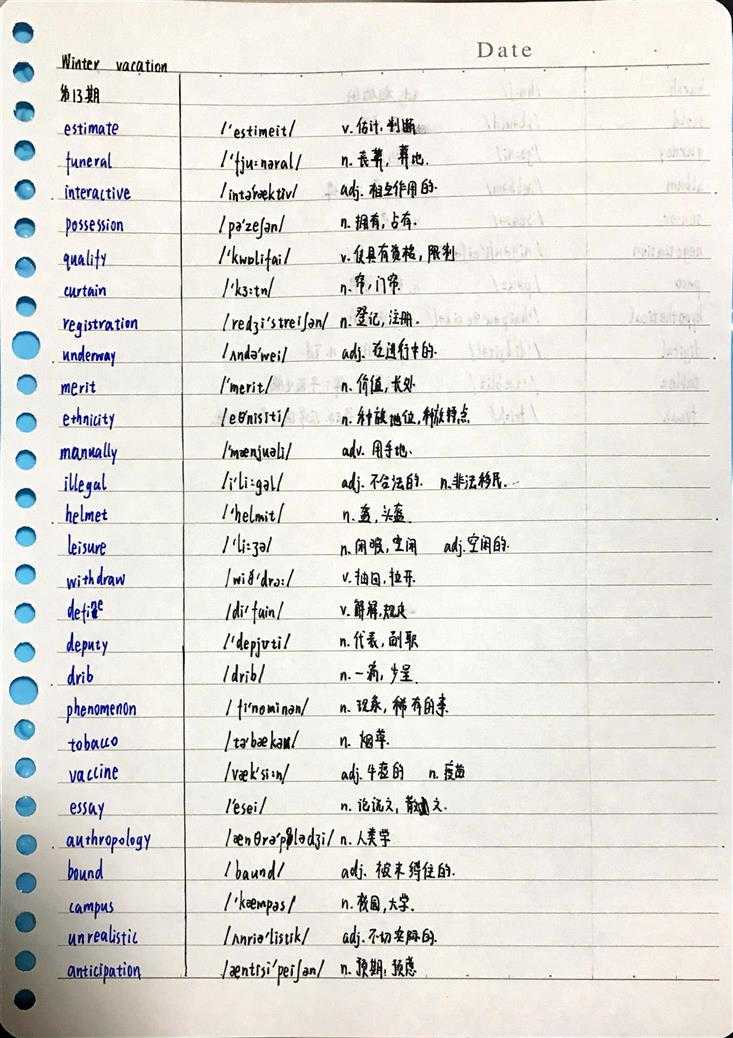 Date
Winter vacation
第13期
estimate /'estimeit/ v. 估计, 判断
funeral /'fju:nərəl/ n. 丧葬, 葬地.
interactive /intə'ræktiv/ adj. 相互作用的.
possession /pə'zeʃən/ n. 拥有, 占有.
qualify /'kwɒlifai/ v. 使具有资格, 限制
curtain /'kɜ:tn/ n. 帘, 门帘.
registration /redʒi'streiʃən/ n. 登记, 注册.
underway /ʌndə'wei/ adj. 在进行中的.
merit /'merit/ n. 价值, 长处
ethnicity /eθ'nisiti/ n. 种族地位, 种族特点
manually /'mænjuəli/ adv. 用手地.
illegal /i'li:gəl/ adj. 不合法的. n.非法移民.
helmet /'helmit/ n. 盔, 头盔
leisure /'li:ʒə/ n. 闲暇, 空闲 adj.空闲的.
withdraw /wið'drɔ:/ v. 抽回, 拉开
define /di'fain/ v. 解解, 规定
deputy /'depjuti/ n. 代表, 副职
drib /drib/ n. 一滴, 少量
phenomenon /fi'nominən/ n. 现象, 稀有的事
tobacco /tə'bækəu/ n. 烟草.
vaccine /'væk'si:n/ adj. 牛痘的 n. 疫苗
essay /'esei/ n. 论说文, 散文.
anthropology /ænθrə'pɒlədʒi/ n. 人类学
bound /baund/ adj. 被束缚住的.
campus /'kæmpəs/ n. 校园, 大学.
unrealistic /ʌnriə'listik/ adj. 不切实际的.
anticipation /æntisi'peiʃən/ n. 预期, 预感